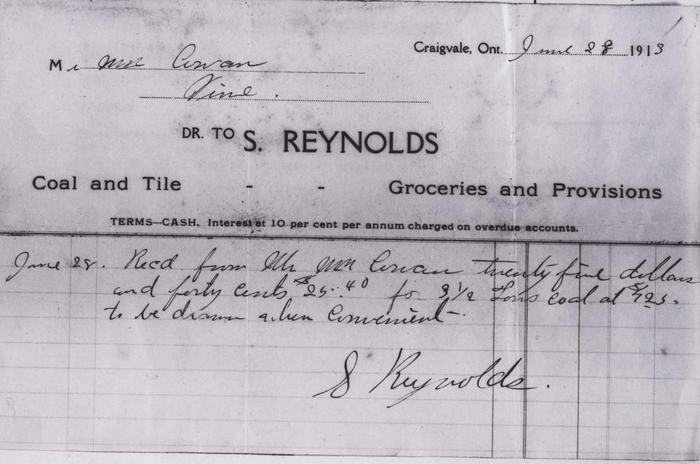 Craigvale, Ont. June 28 1913
Mr Wm Cowan
Vine.
DR. TO S. REYNOLDS
Coal and Tile - - Groceries and Provisions
TERMS—CASH. Interest at 10 per cent per annum charged on overdue accounts.
June 28. Recd from Mr Wm Cowan twenty five dollars
and forty cents $25.40 for 3 1/2 Tons coal at $7.25.
to be drawn when Convenient.
S Reynolds.